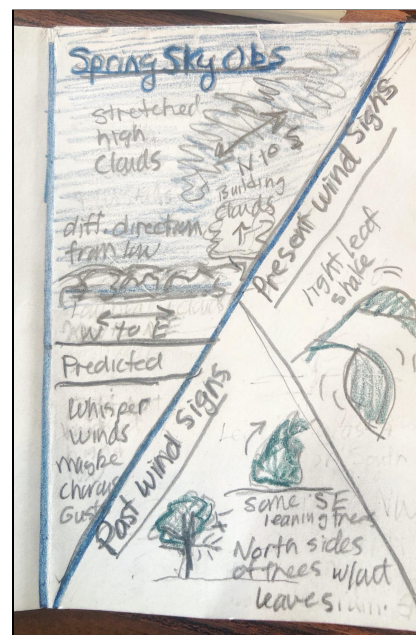 Spring Sky Obs
stretched
high
clouds
N to S
Building
clouds
diff. direction
from low
W to E
Predicted
Whisper
winds
maybe
chorus
Gust
Present Wind Signs
light leaf
shake
Past Wind Signs
Some SE
leaning trees
North sides
of trees w/out
leaves